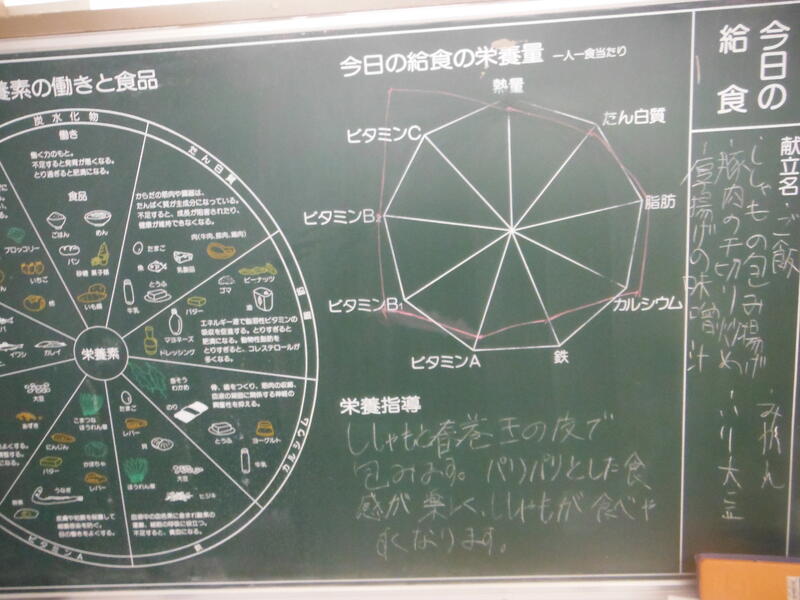 今日の
給食
献立名
・ご飯
・ししゃもの包み揚げ
・豚肉の千切り炒め
・厚揚げの味噌汁
・いり大豆
今日の給食の栄養量 一人一食当たり
熱量
たん白質
脂肪
カルシウム
鉄
ビタミンA
ビタミンB₁
ビタミンB₂
ビタミンC
栄養指導
ししゃもと春巻
の皮で
包みます。パリパリとした食
感が楽しく、ししゃもが食べや
すくなります。
養素の働きと食品
栄養素
炭水化物
働き
働く力のもと。
不足すると発育が悪くなる。
とり過ぎると肥満になる。
食品
ごはん
めん
パン
砂糖
菓子類
いも類
たん白質
からだの筋肉や臓器は、
たんぱく質が主成分になっている。
不足すると、成長が阻害されたり、
健康が維持できなくなる。
肉(牛肉、豚肉、鶏肉)
たまご
魚
乳製品
とうふ
牛乳
ゴマ
ピーナッツ
バター
油
マヨネーズ
ドレッシング
エネルギー源で脂溶性ビタミンの
吸収を促進する。とりすぎると
肥満になる。動物性脂肪を
とりすぎると、コレステロールが
多くなる。
カルシウム
骨、歯をつくり、筋肉の収縮、
血液の凝固に関係する神経の
興奮性を抑える。
わかめ
のり
とうふ
ヨーグルト
牛乳
たまご
レバー
貝
大豆
ヒジキ
ほうれん草
不足すると、貧血になる。
ビタミンA
こまつな
ほうれん草
にんじん
かぼちゃ
バター
レバー
うなぎ
目の働きをよくする。
大豆
あずき
イワシ
カレイ
ブロッコリー
いちご
柿